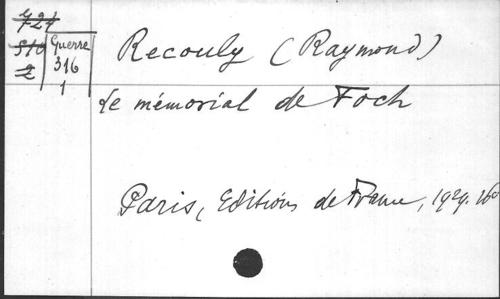 724
510
2
Guerre
316
1
Recouly (Raymond)
Le mémorial de Foch
Paris, Editions de France, 1929. 16°